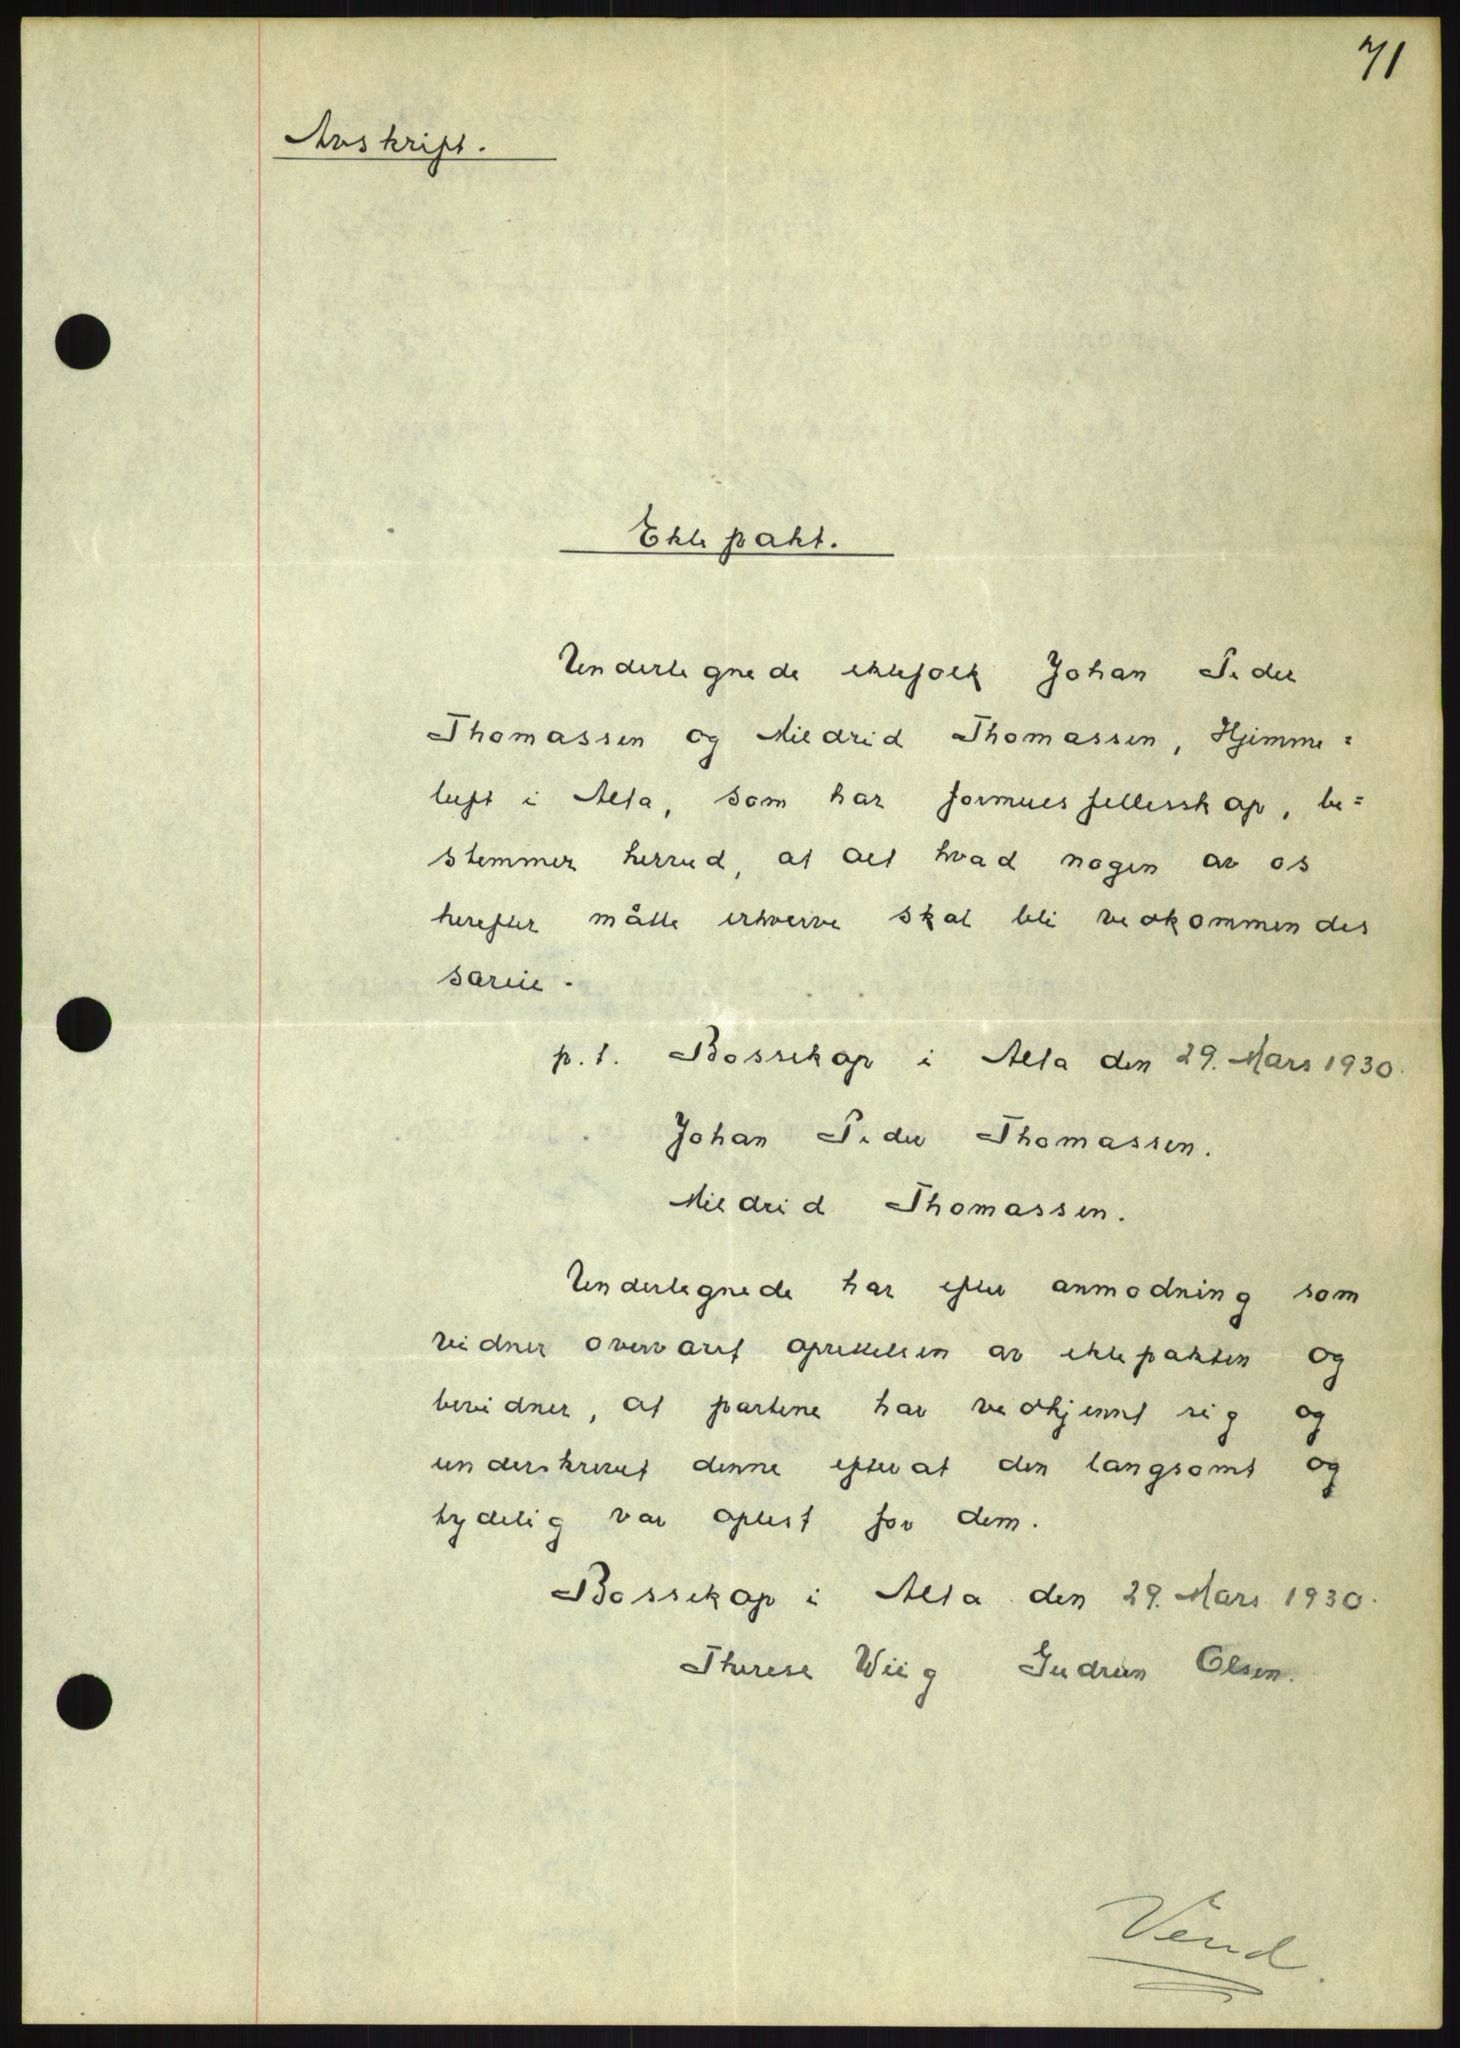 71
Avskrift.
Ektepakt.
Undertegnede ektefolk Johan Peder
Thomassen og Mildrid Thomassen, Hjemme=
luft i Alta, som har formuesfellesskap, be=
stemmer herved, at alt hvad nogen av os
herefter måtte erhverve skal bli vedkommendes
særeie.
p.t. Bossekop i Alta den 29. Mars 1930.
Johan Peder Thomassen.
Mildrid Thomassen.
Undertegnede har efter anmodning som
vidner overvært oprettelsen av ektepakten og
bevidner, at partene har vedkjennt sig og
underskrevet denne efterat den langsomt og
tydelig var oplest for dem.
Bossekop i Alta den 29. Mars 1930.
Therese Wiig Gudrun Olsen.
Vend.